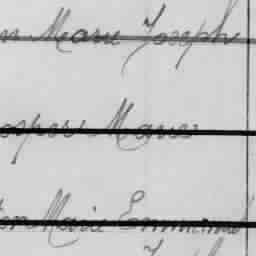 n Marie Joseph
osper Marie
Marie Emmanuel